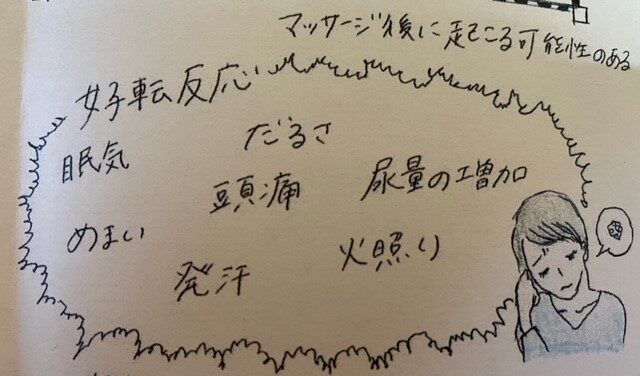 マッサージ後に起こる可能性のある
好転反応
眠気
だるさ
頭痛
尿量の増加
めまい
発汗
火照り